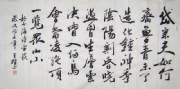 岱宗夫如何
齊魯青未了
造化鍾神秀
陰陽割昏曉
盪胸生曾雲
決眥入歸鳥
會當凌絕頂
一覽衆山小